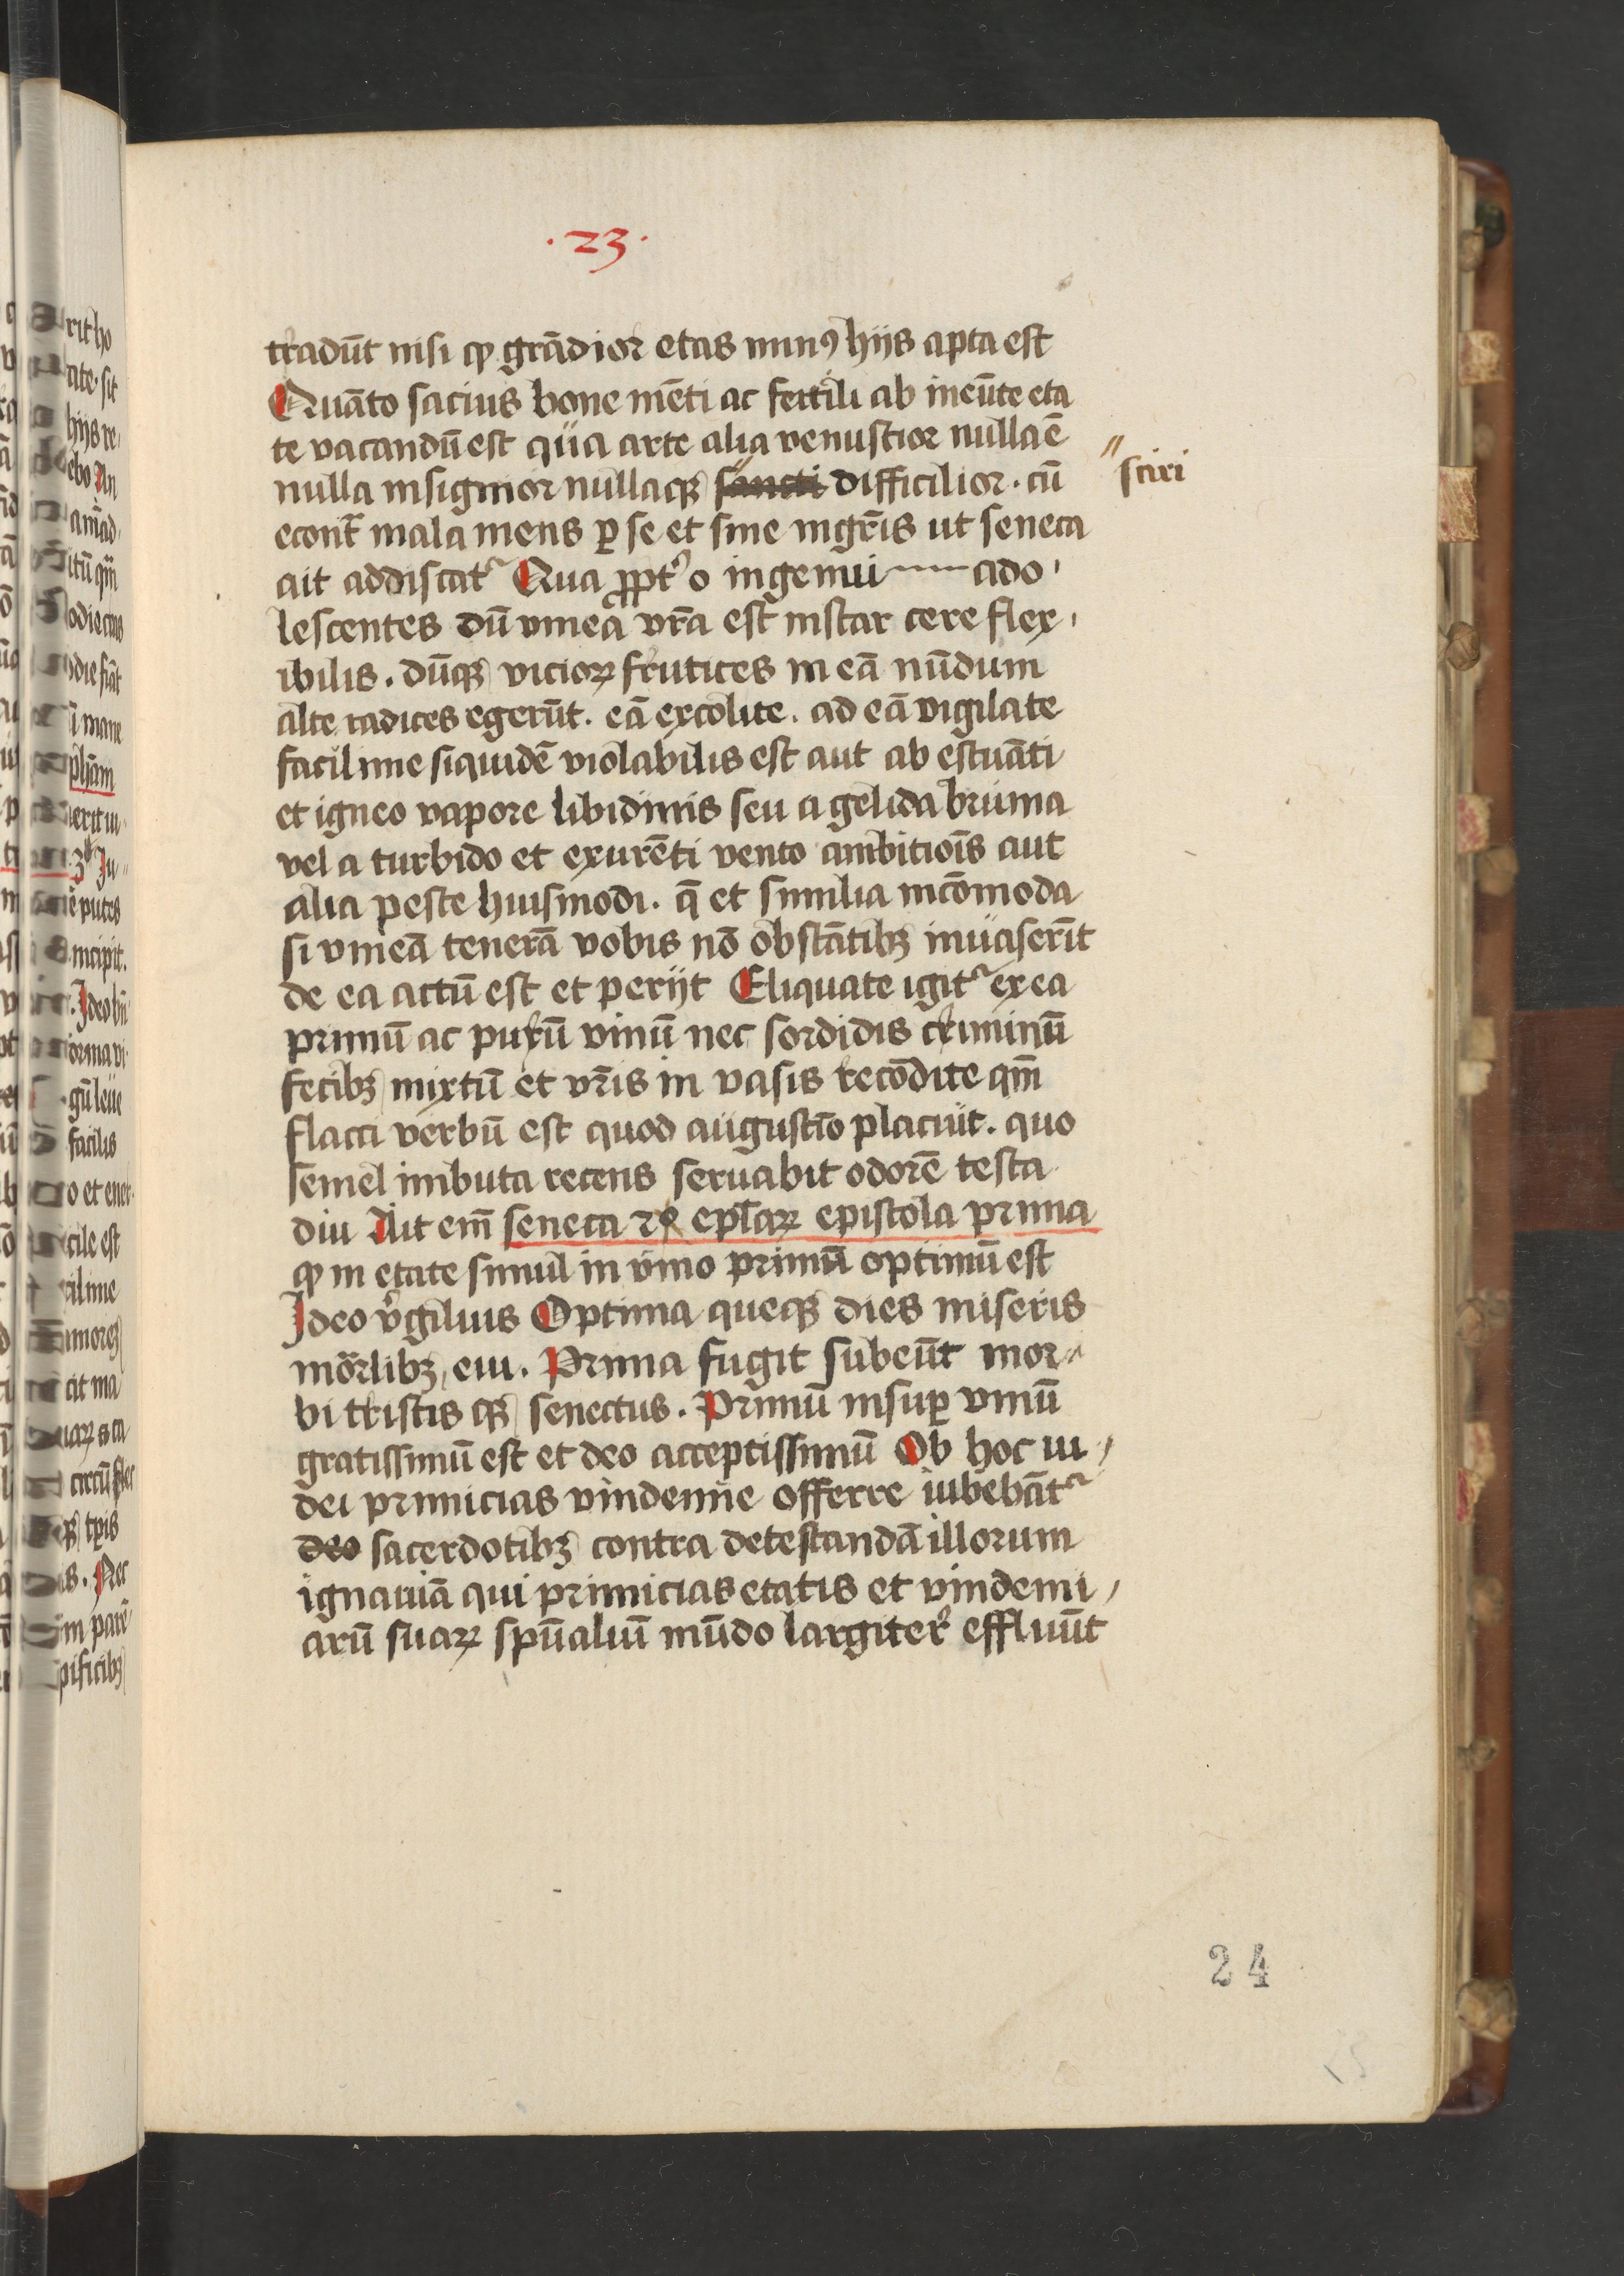 ·23·
tradūt nisi qꝫ grādior etas minꝰ hijs apta est
Quāto sacius bone mēti ac fertili ab ineūte eta
te vacandū est quia arte alia venustior nulla ē
nulla insignior nullaqꝫ sancti difficilior. cū
sciri
econt̄ mala mens ꝑ se et sine ingēis ut seneca
ait addiscat᷑ Qua ꝓpt̕ o ingenui ado
lescentes dū vinea vr̄a est instar cere flex
ibilis. dūqꝫ vicioꝝ frutices in eā nūdum
alte radices egerūt. eā excolite. ad eā vigilate
facilime siquidē violabilis est aut ab estuāti
et igneo vapore libidinis seu a gelida bruma
vel a turbido et exurēti vento ambitiōis aut
alia peste huiusmodi. q̄ et similia incōmoda
si vineā tenerā vobis nō obstātibꝫ inuaserīt
de ea actū est et perijt Eliquate igit᷑ ex ea
primū ac purū vinū nec sordidis criminū
fecibꝫ mixtū et vr̄is in vasis recōdite qm̄
flacci verbū est quod augustīo placuit. quo
semel imbuta recens seruabit odorē testa
diu Ait em̄ seneca eplaꝝ epistola prima
qꝫ in etate simul in vino primū optimū est
Ideo v̕gilius Optima queqꝫ dies miseris
mortlibꝫ eui. Prima fugit subeūt mor
bi tristis qꝫ senectus. Primū insuꝑ vinū
gratissimū est et deo acceptissimū Ob hoc iu
dei primicias vindemie offerre iubebāt᷑
deo sacerdotibꝫ contra detestandā illorum
ignauiā qui primicias etatis et vindemi
arū suaꝝ spūaliū mūdo largiter̕ effluūt
24